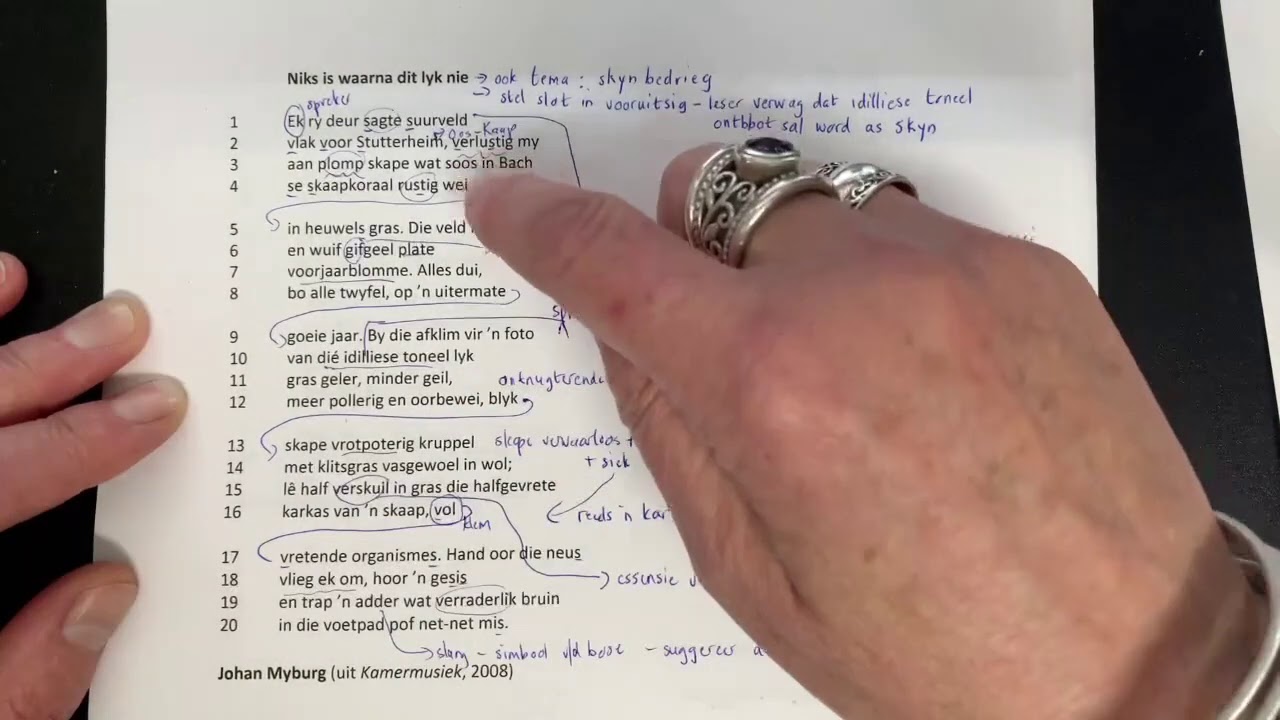 Niks is waarna dit lyk nie → ook tema : skyn bedrieg
→ stel slot in vooruitsig – leser verwag dat idilliese toneel
ontbloot sal word as skyn
spreker
1 Ek ry deur sagte suurveld
Oos-Kaap
2 vlak voor Stutterheim, verlustig my
3 aan plomp skape wat soos in Bach
4 se skaapkoraal rustig wei
5 in heuwels gras. Die veld
6 en wuif gifgeel plate
7 voorjaarblomme. Alles dui,
8 bo alle twyfel, op 'n uitermate
9 goeie jaar. By die afklim vir 'n foto
10 van dié idilliese toneel lyk
11 gras geler, minder geil, ontnugterende
12 meer pollerig en oorbewei, blyk
13 skape vrotpoterig kruppel skape verwaarloos +
14 met klitsgras vasgewoel in wol; + siek
15 lê half verskuil in gras die halfgevrete
16 karkas van 'n skaap, vol reeds 'n kar
klem
17 vretende organismes. Hand oor die neus
18 vlieg ek om, hoor 'n gesis → essensie v
19 en trap 'n adder wat verraderlik bruin
20 in die voetpad pof net-net mis.
→ slang – simbool v/d bose – suggereer
Johan Myburg (uit Kamermusiek, 2008)